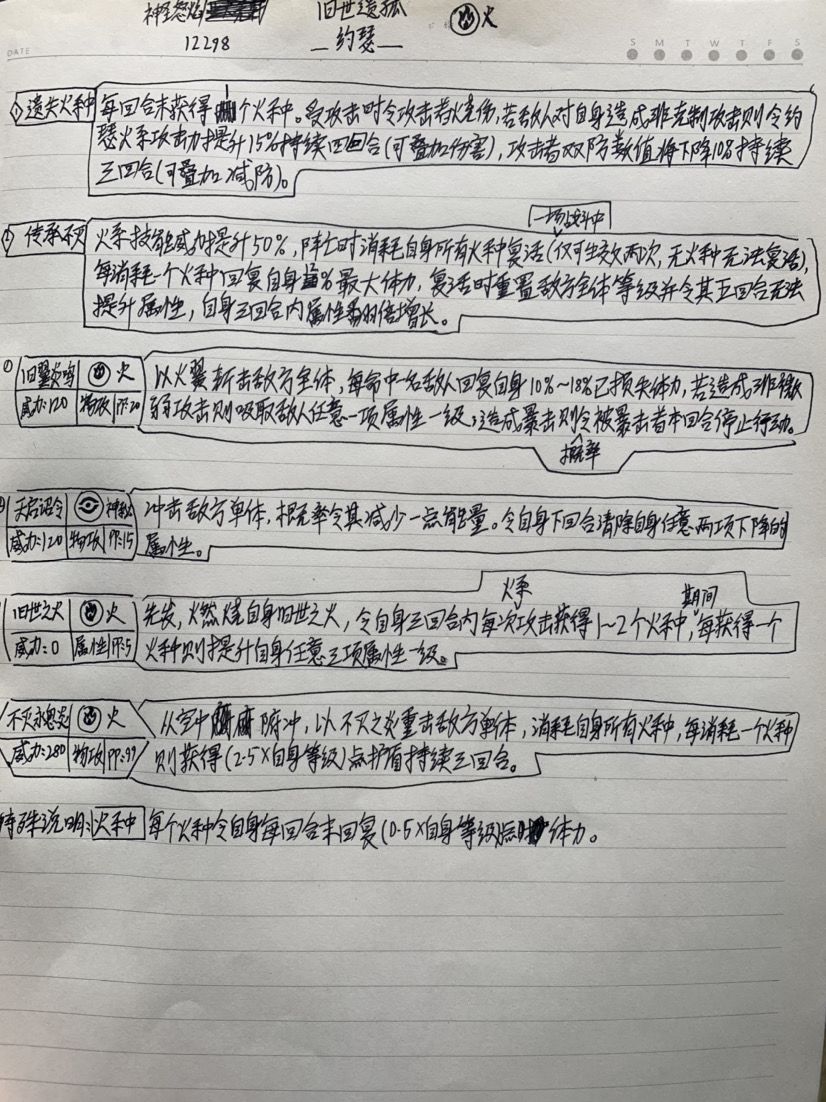 神圣怒焰 旧世遗孤 火
12298 —约瑟—
DATE S M T W T F S
遗失火种 每回合末获得1个火种。受攻击时令攻击者烧伤,若敌人对自身造成非克制攻击则令约
瑟火系攻击力提升15%持续四回合(可叠加伤害),攻击者双防数值将下降10%持续
三回合(可叠加减防)。
一场战斗中
传承不灭 火系技能威力提升50%,阵亡时消耗自身所有火种复活(仅可生效两次,无火种无法复活),
每消耗一个火种回复自身%最大体力,复活时重置敌方全体等级并令其五回合无法
提升属性,自身三回合内属性倍增长。
① 旧翼炎鸣 火 以火翼斩击敌方全体,每命中一名敌人回复自身10%~18%已损失体力,若造成非微
威力:120 物攻 PP:20 弱攻击则吸取敌人任意一项属性一级,造成暴击则令被暴击者本回合停止行动。
概率
天启诏令 神秘 冲击敌方单体,概率令其减少一点能量。令自身下回合清除自身任意两项下降的
威力:120 物攻 PP:15 属性。
火系 期间
旧世之火 火 先发,火燃烧自身旧世之火,令自身三回合内每次攻击获得1~2个火种,每获得一个
威力:0 属性 PP:5 火种则提升自身任意三项属性一级。
不灭永恩炎 火 从空中俯冲,以不灭之炎重击敌方单体,消耗自身所有火种,每消耗一个火种
威力:280 物攻 PP:99 则获得(2.5×自身等级)点护盾持续三回合。
特殊说明:火种 每个火种令自身每回合末回复(0.5×自身等级)点体力。